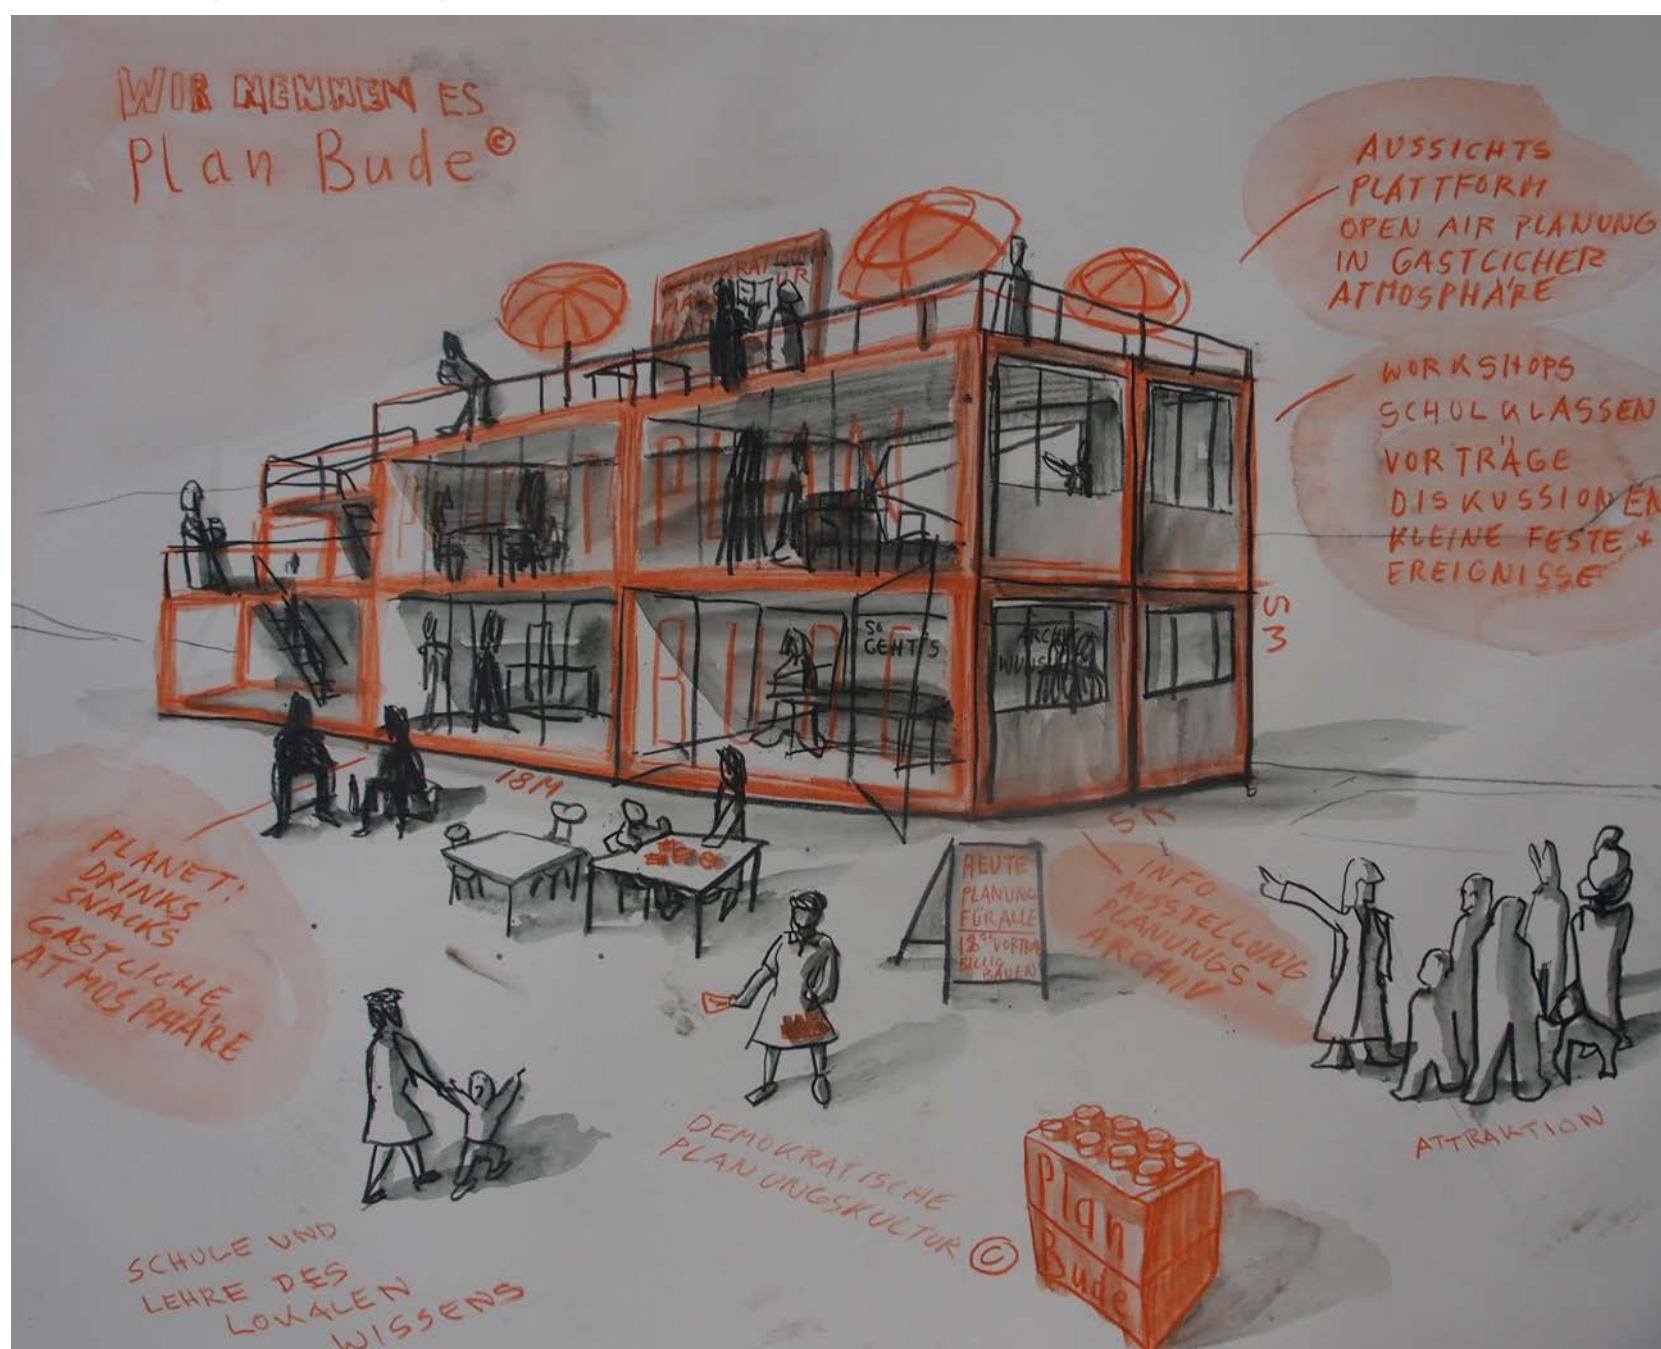 WIR NENNEN ES
Plan Bude©
AUSSICHTS
PLATTFORM
OPEN AIR PLANUNG
IN GASTLICHER
ATMOSPHÄRE
WORKSHOPS
SCHULKLASSEN
VORTRÄGE
DISKUSSIONEN
KLEINE FESTE +
EREIGNISSE
PLAN
BUDE
SO
GEHT'S
ARCHIV
53
18M
5M
PLANET:
DRINKS
SNACKS
GASTLICHE
ATMOSPHÄRE
HEUTE
PLANUNG
FÜR ALLE
18°° VORTRAG
BILLIG
BAUEN
INFO
AUSSTELLUNG
PLANUNGS-
ARCHIV
ATTRAKTION
DEMOKRATISCHE
PLANUNGSKULTUR ©
Plan
Bude
SCHULE UND
LEHRE DES
LOKALEN
WISSENS